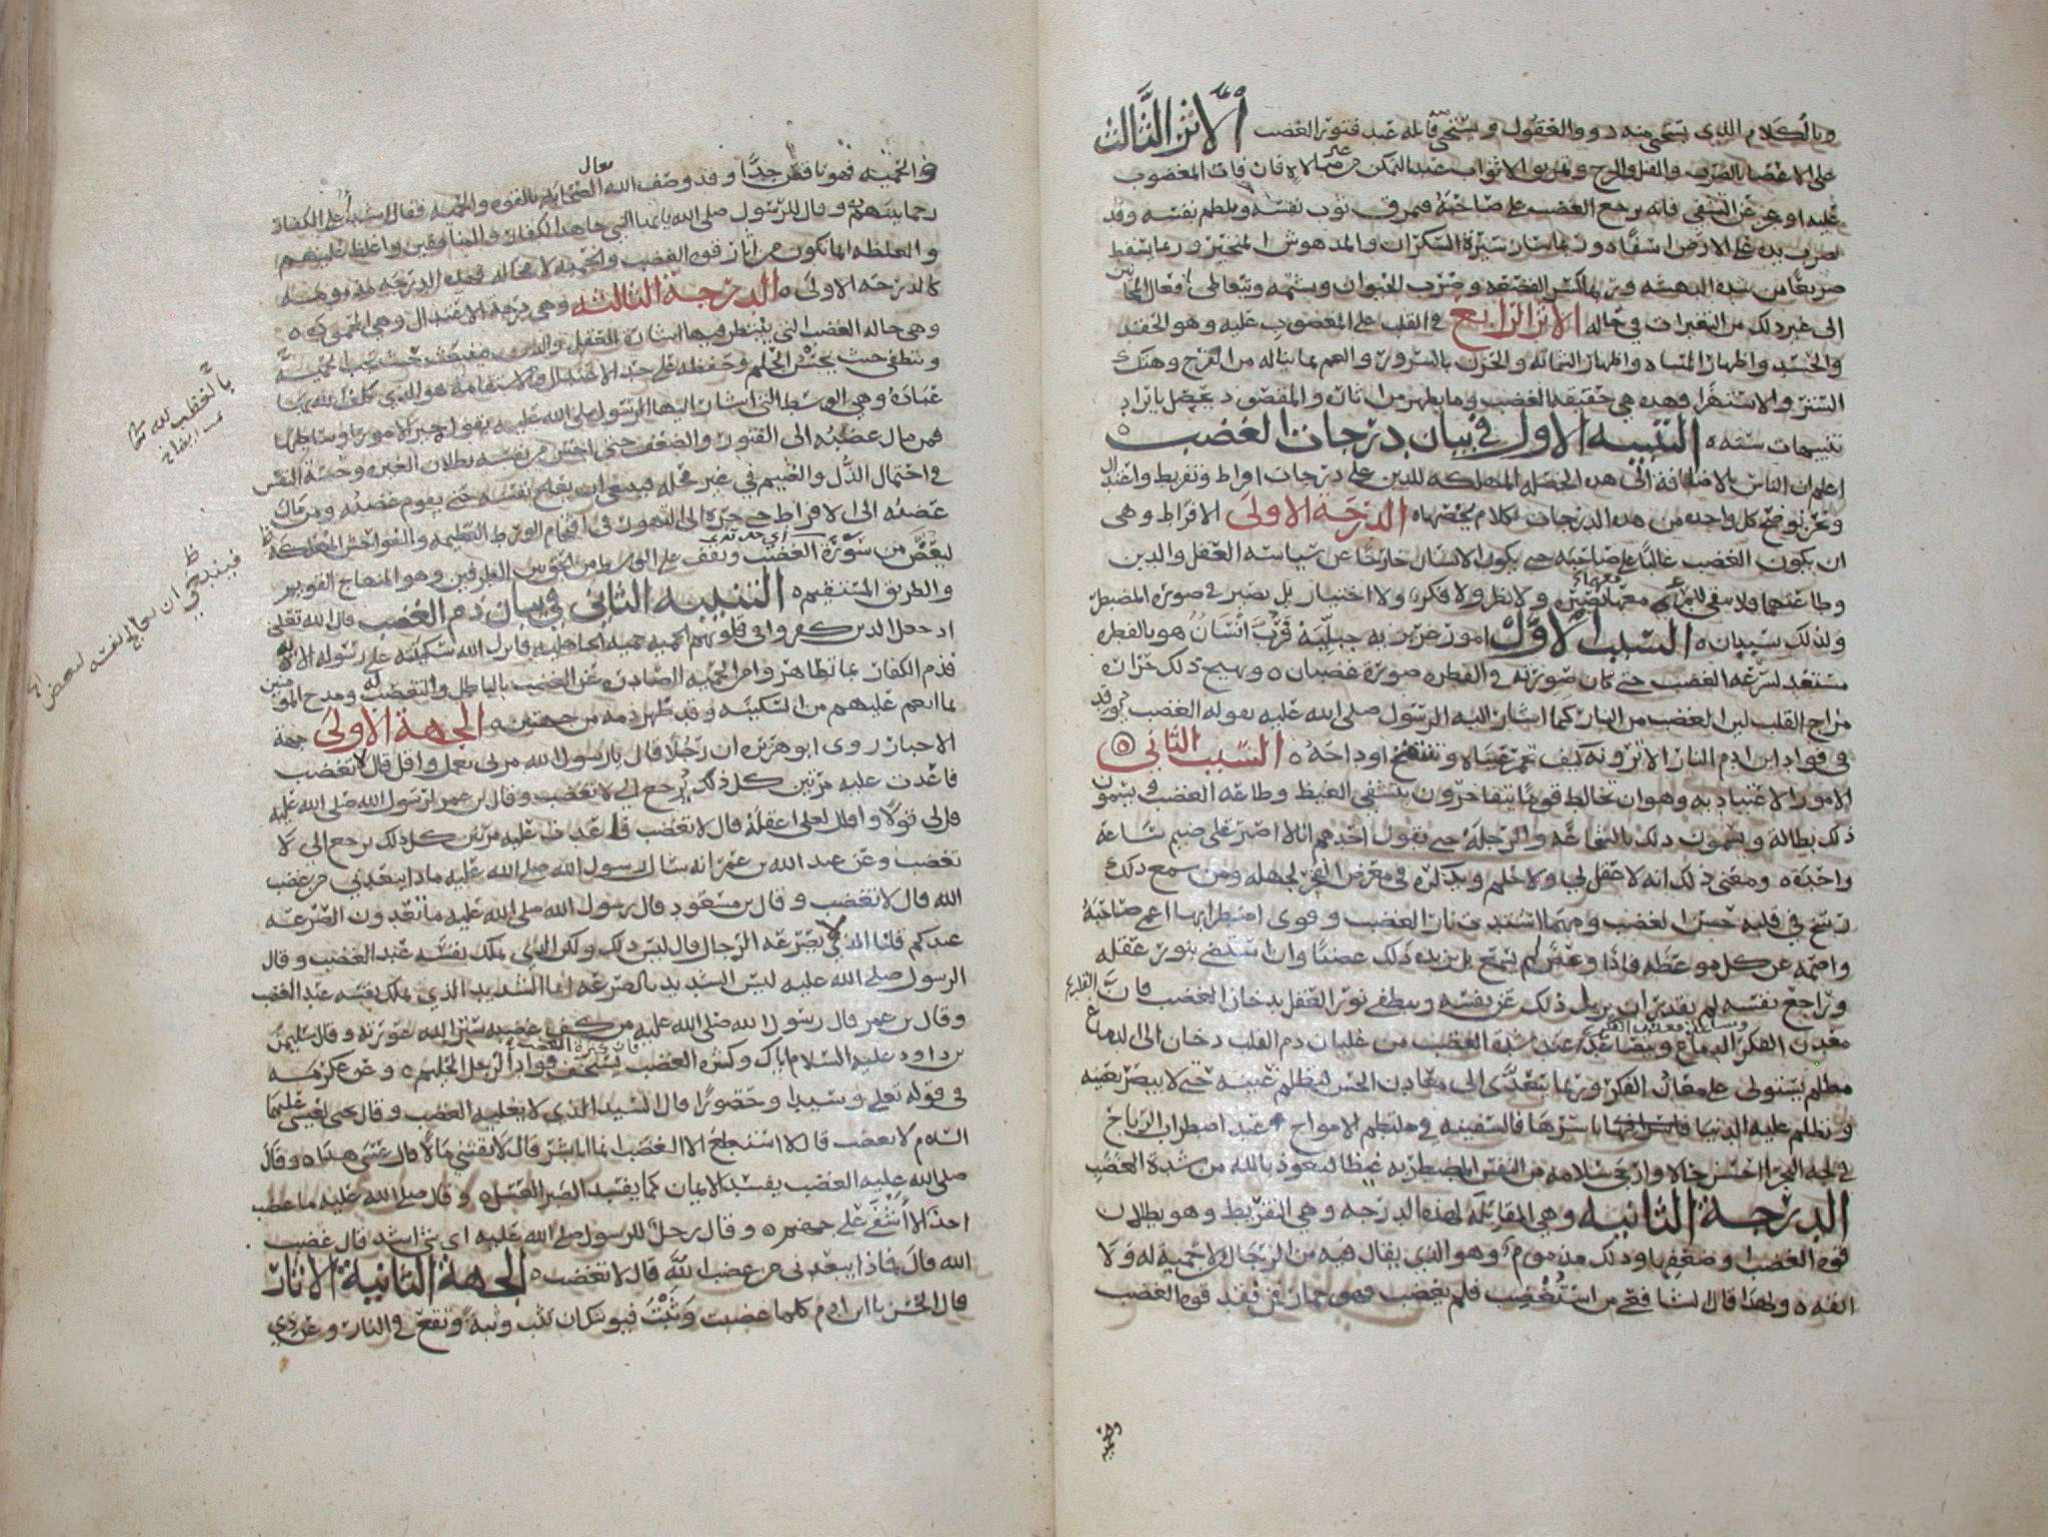 وبالكلام الذي يستحي منه ذوو العقول ويستحي قائله عند فتور الغضب الأثر الثالث
على الاعضا بالضرب والقتل والجرح وتمزيق الاثواب عند التمكن من غير مبالاه فان فات المغضوب
عليه او عجز عن التشفي فانه يرجع الغضب على صاحبه فيمزق ثوب نفسه ويلطم نفسه وقد
يضرب بيده على الارض اسفًا ٥ وربما سار سيرة السكران والمدهوش المتحير وربما يسقط
صريعًا من شده الدهشه وربما كسر القصعه وضرب الحيوان وشتمه ويتعاطى افعال المجانين
الى غير ذلك من التغيرات في حاله الاثر الرابع في القلب على المغضوب عليه وهو الحقد
والحسد واظهار المساه واظهار الشماته والحزن بالسرور والغم بما يناله من الفرح وهتك
الستر والاستهزا فهذه هي حقيقة الغضب وما يظهر من اثاره والمقصود يحصل بايراد
تنبيهات سته ٥ التنبيه الاول في بيان درجات الغضب ٥
اعلم ان الناس بالاضافة الى هذه الخصله المهلكه للدين على درجات افراط وتفريط واعتدال
ونحن نوضح كل واحده من هذه الدرجات بكلام يخصها ٥ الدرجه الاولى الافراط وهي
ان يكون الغضب غالبًا على صاحبه حتى يكون الانسان خارجًا عن سياسه العقل والدين
وطاعتهما فلا يبقى للمرء معهما بصيره ولا نظر ولا فكر ولا اختيار بل يصير في صورة المضطر
ولذلك سببان ٥ السبب الاول امور غريزيه جبليه فرب انسان هو بالفطره
مستعد لسرعه الغضب حتى كان صورته في الفطره صورة غضبان ٥ ويهيج ذلك حرارة
مزاج القلب لان الغضب من النار كما اشار اليه الرسول صلى الله عليه بقوله الغضب يوقد
في فواد ابن ادم النار الا ترونه كيف تحمر عيناه وتنتفخ اوداجه ٥ السبب الثاني ٥
الامور الاعتياديه وهو ان يخالط قومًا يتفاخرون بتشفي الغيظ وطاعه الغضب ويسمون
ذلك بطاله ويسمون ذلك بالشجاعه والرجله حتى يقول احدهم انا لا اصبر على ضيم ساعه
واحده ٥ ومعنى ذلك انه لا عقل لي ولا حلم ويذكره في معرض الفخر لجهله ومن سمع ذلك
رسخ في قلبه حسن الغضب ومهما اشتدت نار الغضب وقوي اضطرابها اعمى صاحبه
واصمه عن كل موعظه فاذا وعظ لم يسمع بل يزيده ذلك غضبًا وان استضى بنور عقله
وراجع نفسه لم يقدر ان يزيل ذلك عن نفسه وينطفي نور العقل بدخان الغضب فان القلب
معدن الفكر الدماغ ويتصاعد عند شدة الغضب من غليان دم القلب دخان الى الدماغ
مظلم يستولي على معادن الفكر وربما يتعدى الى معادن الحس فتظلم عينيه حتى لا يبصر بعينه
وتظلم عليه الدنيا باسرها فالسفينه في ملتطم الامواج عند اضطراب الرياح
في لجه البحر احسن حالا وارجى سلامه من النفس المضطربه غيظا فنعوذ بالله من شدة الغضب
الدرجة الثانيه وهي المقابله لهذه الدرجه وهي التفريط وهو بطلان
قوه الغضب وضعفها وذلك مذموم وهو الذي يقال فيه من الرجال لا حمية له ولا
انفه ٥ ولهذا قال الشافعي من استغضب فلم يغضب فهو حمار فمن فقد قوه الغضب
والحميه
والحميه فهو ناقص جدًا وقد وصف الله تعالى الصحابه بالقوه والحميه فقال اشداء على الكفار
رحما بينهم ٥ وقال للرسول صلى الله يا ايها النبي جاهد الكفار والمنافقين واغلظ عليهم
والغلظه انما تكون من اثار قوه الغضب والحميه لا محاله فهذه الدرجه مذمومه
كالدرجه الاولى ٥ الدرجة الثالثه وهي درجة الاعتدال وهي المحموده ٥
وهي حاله الغضب التي ينتظر فيها اشارة العقل والدين فينبعث حيث تجب الحميه
وينطفي حيث يحسن الحلم وحفظه على حد الاعتدال والاستقامه هو الذي كلف الله بها
عباده وهي الوسط التي اشار اليها الرسول صلى الله عليه بقوله خير الامور اوساطها
فمن مال غضبه الى الفتور والضعف حتى احس من نفسه بطلان الغيره وخسة النفس
في احتمال الذل والضيم في غير محله فينبغي ان يعالج نفسه حتى يقوم غضبه ومن مال
غضبه الى الافراط حتى جره الى التهور في اقتحام الورط العظيمه والفواحش المهلكه
ليغض من سورة الغضب ويقف على الوسط من الحق بين الطرفين وهو المنهاج القويم
والطريق المستقيم ٥ التنبيه الثاني في بيان ذم الغضب قال الله تعالى
اذ جعل الذين كفروا في قلوبهم الحميه حميه الجاهليه فانزل الله سكينته على رسوله الايه
فذم الكفار بما تظاهروا من الحميه الصادره عن الغضب بالباطل والتعصب له ومدح المومنين
بما انعم عليهم من السكينه وقد ظهر ذمه من جهتين ٥ الجهة الاولى جهة
الاخبار روى ابو هريره ان رجلا قال يا رسول الله مرني بعمل واقل قال لا تغضب
فاعدت عليه مرتين كل ذلك يرجع الي لا تغضب وقال بن عمر لرسول الله صلى الله عليه
قل لي قولا واقلل لعلي اعقله قال لا تغضب فاعدت عليه مرتين كل ذلك يرجع الي لا
تغضب وعن عبد الله بن عمر انه سال رسول الله صلى الله عليه ماذا يبعدني من غضب
الله قال لا تغضب وقال بن مسعود قال رسول الله صلى الله عليه ما تعدون الصرعه
عندكم قلنا الذي لا يصرعه الرجال قال ليس ذلك ولكن الذي يملك نفسه عند الغضب وقال
الرسول صلى الله عليه ليس الشديد بالصرعه انما الشديد الذي يملك نفسه عند الغضب
وقال بن عمر قال رسول الله صلى الله عليه من كف غضبه ستر الله عورته وقال سليمن
بن داود عليه السلام اياك وكثرة الغضب فان كثرة الغضب يستخف فواد الرجل الحليم ٥ وعن عكرمه
في قوله تعلى وسيدا وحصورًا قال السيد الذي لا يغلبه الغضب وقال يحى لعيسى عليهما
السلام لا تغضب قال لا استطيع الا الغضب انما انا بشر قال لا تقتني مالا قال عسى هذا ٥ وقال
صلى الله عليه الغضب يفسد الايمان كما يفسد الصبر العسل ٥ وقال صلى الله عليه ما غضب
احد الا اشفى على جهنم ٥ وقال رجل للرسول صلى الله عليه اي شي اشد قال غضب
الله قال فماذا يبعدني من غضب الله قال لا تغضب ٥ الجهة الثانية الاثار
قال الحسن يا ابن ادم كلما غضبت وثبت فيوشك ان تثب وثبة وتقع في النار وعن ذي
فينبغي ان يعالج نفسه لبعض